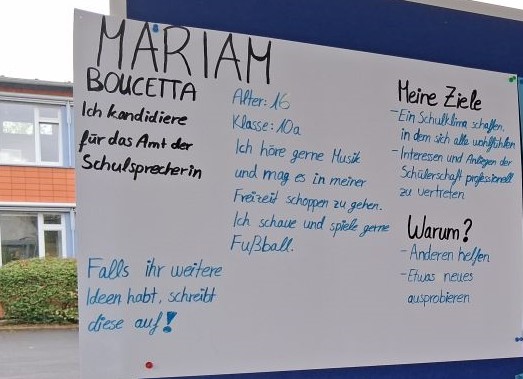 MARIAM
BOUCETTA
Ich kandidiere
für das Amt der
Schulsprecherin
Alter: 16
Klasse: 10a
Ich höre gerne Musik
und mag es in meiner
Freizeit schoppen zu gehen.
Ich schaue und spiele gerne
Fußball.
Meine Ziele
- Ein Schulklima schaffen,
in dem sich alle wohlfühlen
- Interessen und Anliegen der
Schülerschaft professionell
zu vertreten
Warum?
- Anderen helfen
- Etwas neues
ausprobieren
Falls ihr weitere
Ideen habt, schreibt
diese auf!